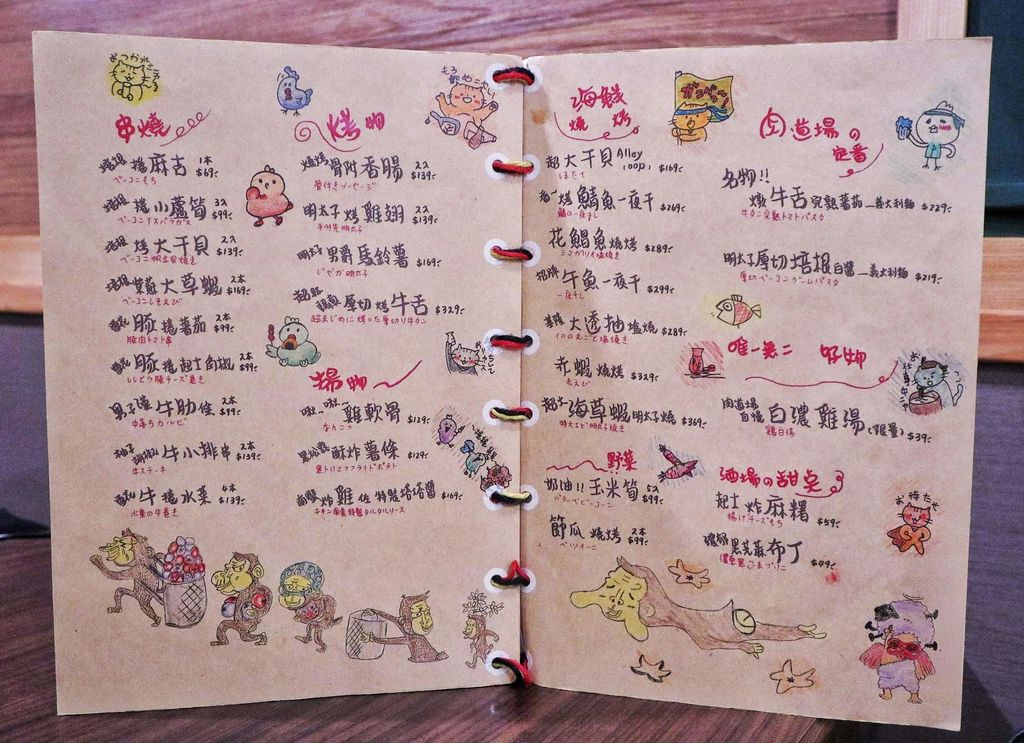 おつかれさまる
串燒
培根捲麻吉 1本 $69.-
ベーコンもち
培根捲小蘆筍 3入 $99.-
ベーコンアスパラガス
培根烤大干貝 2入 $139.-
ベーコン帆立貝焼き
培根紫蘇大草蝦 2本 $169.-
ベーコンしそえび
豚捲蕃茄 2本 $99.-
豚肉トマト串
豚捲起士角椒 2本 $99.-
ししとう豚チーズ巻き
男子漢牛肋條 2本 $99.-
中落ちカルビ
柚子胡椒牛小排串 2本 $139.-
牛ステーキ
牛捲水菜 4本 $139.-
水菜の牛巻き
烤物
燒烤骨附香腸 2入 $139.-
骨付きソーセージ
明太子烤雞翅 2入 $139.-
手羽先明太子
明太子男爵馬鈴薯 $169.-
じゃが明太子
超級認真厚切烤牛舌 $329.-
超まじめに烤った厚切り牛タン
揚物
啾~啾~雞軟骨 $129.-
なんこつ
黑松露酥炸薯條 $129.-
黒トリュフフライドポテト
炸雞佐特製塔塔醬 $169.-
チキン南蛮特製タルタルソース
海鮮燒烤
超大干貝 Alley oop! $169.-
ほたて
烤鯖魚一夜干 $269.-
鯖の一夜干し
花鯧魚燒烤 $289.-
午魚一夜干 $299.-
一夜干し
大透抽塩燒 $289.-
赤蝦燒烤 $329.-
赤えび
超大海草蝦明太子燒 $369.-
特大エビ明太子焼き
野菜
奶油!!玉米筍 5入 $99.-
バターベビーコーン
節瓜燒烤 2本 $99.-
ガンバッ!
肉道場の定番
名物!!
燉牛舌完熟蕃茄__義大利麵 $229.-
牛タン完熟トマトパスタ
明太子厚切培根白醬__義大利麵 $219.-
唯一無二 好物
お仕事中ニャ
肉道場自慢白濃雞湯(限量) $39.-
鶏白湯
酒場の甜点
起士炸麻糬 $59.-
揚げチーズもち
濃郁黑芝麻布丁 $49.-
濃厚黒ごまプリン
お待たせ